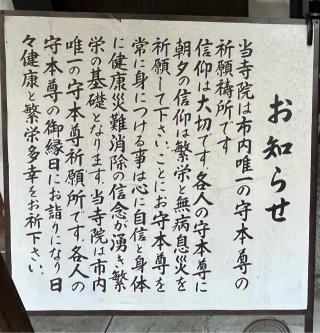 お知らせ
当寺院は市内唯一の守本尊の
祈願祷所です
信仰は大切です。各人の守本尊に
朝夕の信仰は繁栄と無病息災を
祈願して下さい。ことにお守本尊を
常に身につける事は心に自信と身体
に健康災難消除の信念が湧き繁
栄の基礎となります。当寺院は市内
唯一の守本尊祈願所です。各人の
守本尊の御縁日にお詣りになり日
々健康と繁栄多幸をお祈下さい。